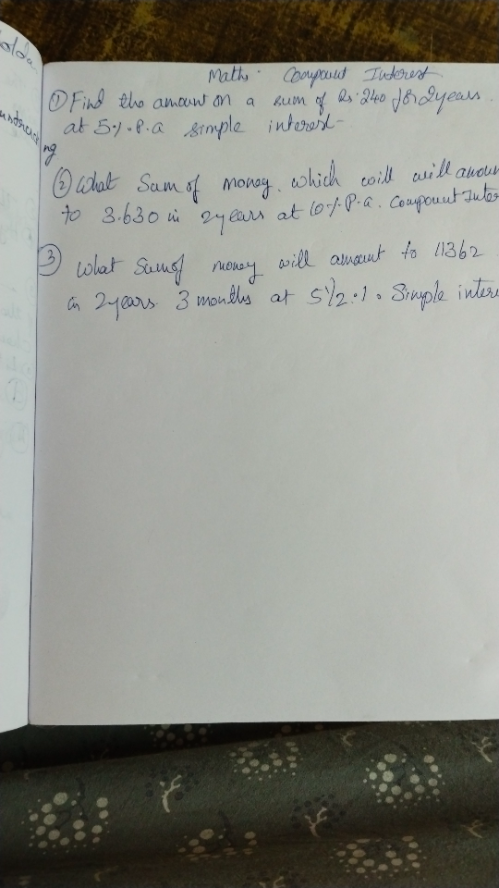 olda
Maths. Compount Interest
① Find the amount on a sum of Rs. 240 for 2 years
at 5 %. P. a simple interest-
ng
② What Sum of money. which will will amoun
to 3.630 in 2 years at 10 %. P. a. Compount Inter
③ What Sum of money will amount to 11362
in 2 years 3 months at 5 1/2 %. Simple intere